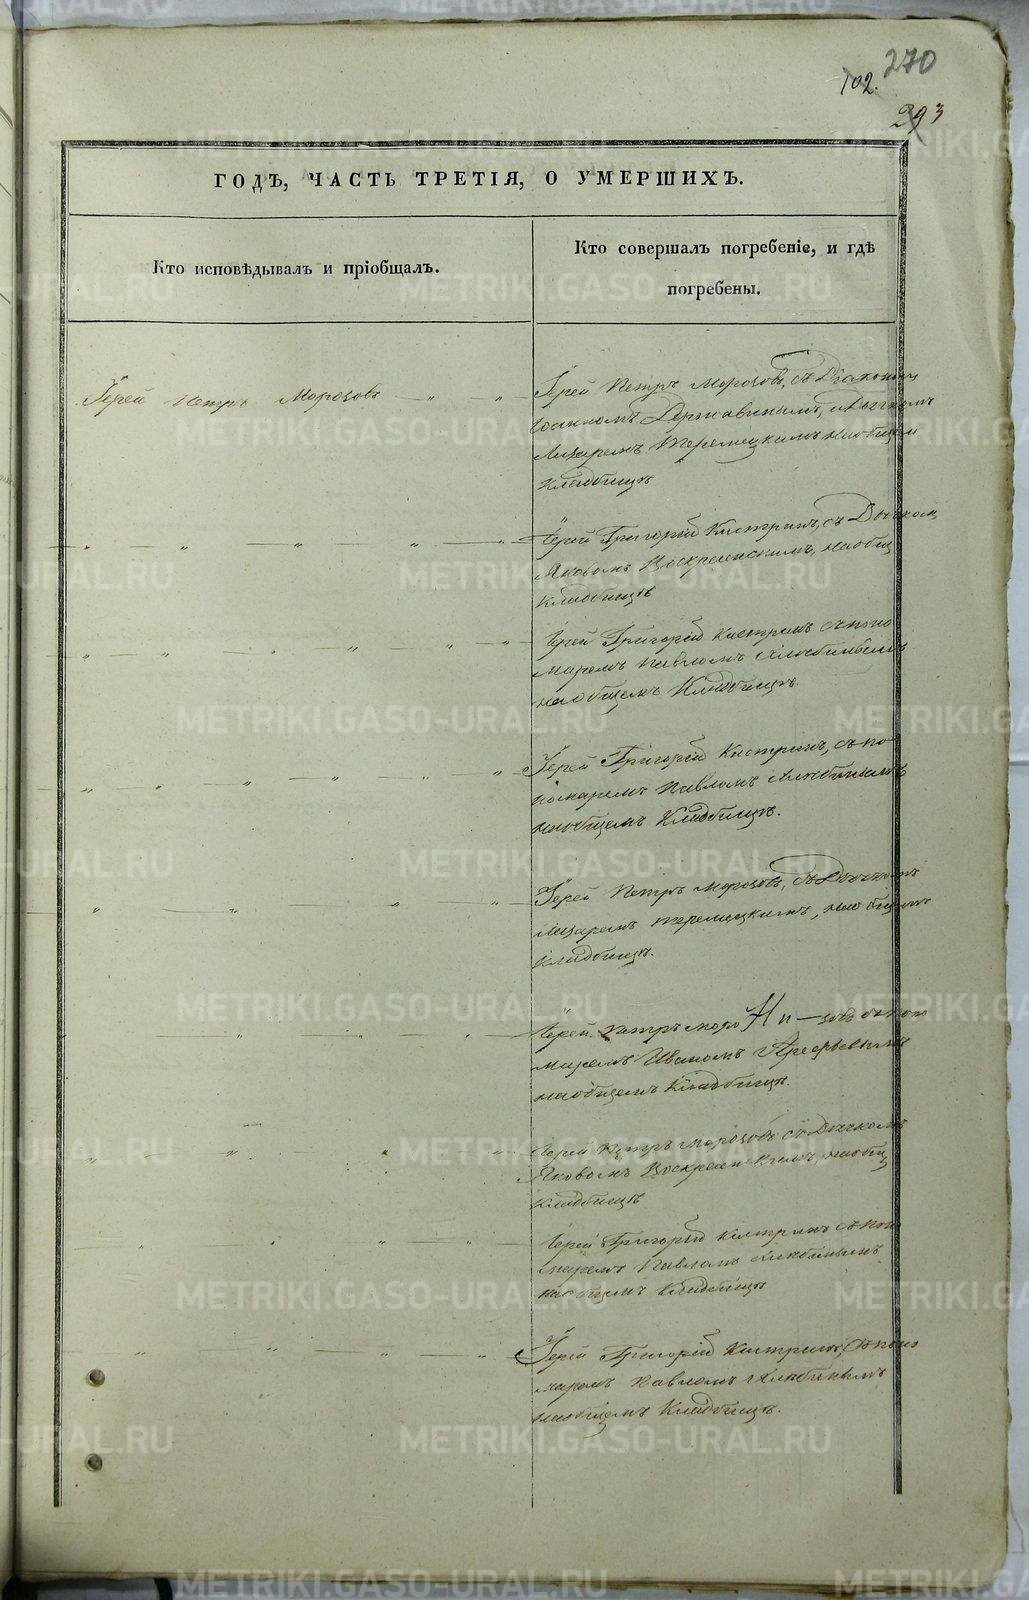 270
102.
293
ГОДЪ, ЧАСТЬ ТРЕТІЯ, О УМЕРШИХЪ.
Кто исповѣдывалъ и пріобщалъ.
Кто совершалъ погребеніе, и гдѣ
погребены.
Іерей Петръ Морозовъ
Іерей Петръ Морозовъ, съ Діакономъ
Іоанномъ Державинымъ, Дьячкомъ
Лазаремъ Теремецкимъ на общем
кладбищѣ
Іерей Григорій Кастринъ, съ Дьячком
Яковомъ Воскресенскимъ, на общ
кладбищѣ
Іерей Григорій Кастринъ съ поно
маремъ Павломъ
на общемъ Кладбищѣ.
Іерей Григорій Кастринъ, съ по
номаремъ Павломъ
на общемъ Кладбищѣ.
Іерей Петръ Морозовъ, съ Дьячкомъ
Лазаремъ Теремецкимъ, на общемъ
кладбищѣ.
Іерей Петръ Моро зовъ съ поно
маремъ Иваномъ
на общемъ Кладбищѣ.
Іерей Петръ Морозовъ съ Дьячкомъ
Яковомъ Воскресенскимъ, на общ
кладбищѣ
Іерей Григорій Кастринъ съ поно
маремъ Павломъ
на общемъ Кладбищѣ
Іерей Григорій Кастринъ, съ поно
маремъ Павломъ
на общемъ Кладбищѣ.
METRIKI.GASO-URAL.RU